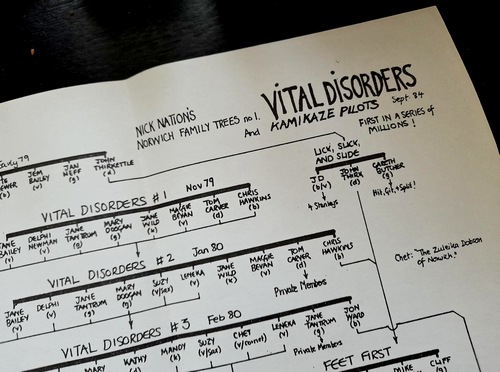 VITAL DISORDERS
NICK NATION'S
NORWICH FAMILY TREES no 1.
And KAMIKAZE PILOTS
Sept. 84
FIRST IN A SERIES of
MILLIONS!
Early 79
JEM
BAILEY
(v)
JAN
NEFF
(g)
JOHN
THIRKETTLE
(d)
LICK, SLICK,
AND SLIDE
J D
(b/v)
JOHN
THIRK
(d)
GARETH
BUTCHER
(g)
4 Strings
Hit, Git, & Split!
VITAL DISORDERS #1
Nov 79
JANE
BAILEY
(v)
DELPHI
NEWMAN
(v)
JANE
TANTRUM
(g)
MARY
DOOGAN
(g)
JANE
WILD
(k)
MAGGIE
BEVAN
(v)
TOM
CARVER
(d)
CHRIS
HAWKINS
(b)
VITAL DISORDERS #2
Jan 80
JANE
BAILEY
(v)
DELPHI
(v)
JANE
TANTRUM
(g)
MARY
DOOGAN
(g)
SUZY
(v/sax)
LENEKA
(v)
JANE
WILD
(k)
MAGGIE
BEVAN
(v)
TOM
CARVER
(d)
CHRIS
HAWKINS
(b)
Private Members
Chet: "The Zuleika Dobson
of Norwich."
VITAL DISORDERS #3
Feb 80
MARY
KATHY
(d)
MANDY
(k)
SUZY
(v/sax)
CHET
(v/cornet)
LENEKA
(v)
JANE
TANTRUM
(g)
JON
WARD
(b)
Private Members
FEET FIRST
MIKE
CLIFF
(g)